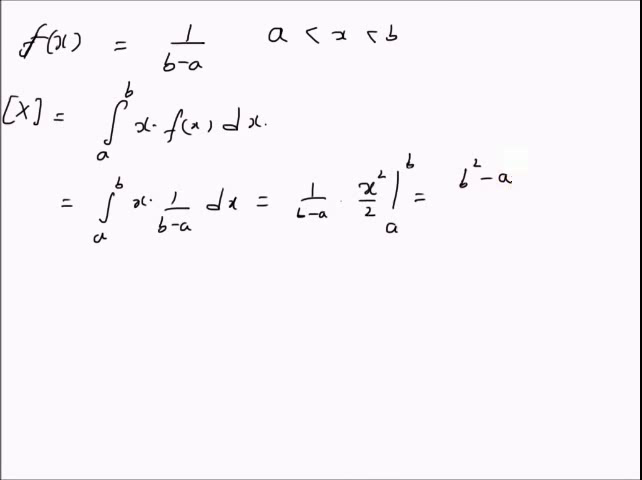 f(x) = 1/(b-a) a < x < b
[X] = ∫_a^b x · f(x) dx.
= ∫_a^b x · 1/(b-a) dx = 1/(b-a) · x²/2 |_a^b = b² - a